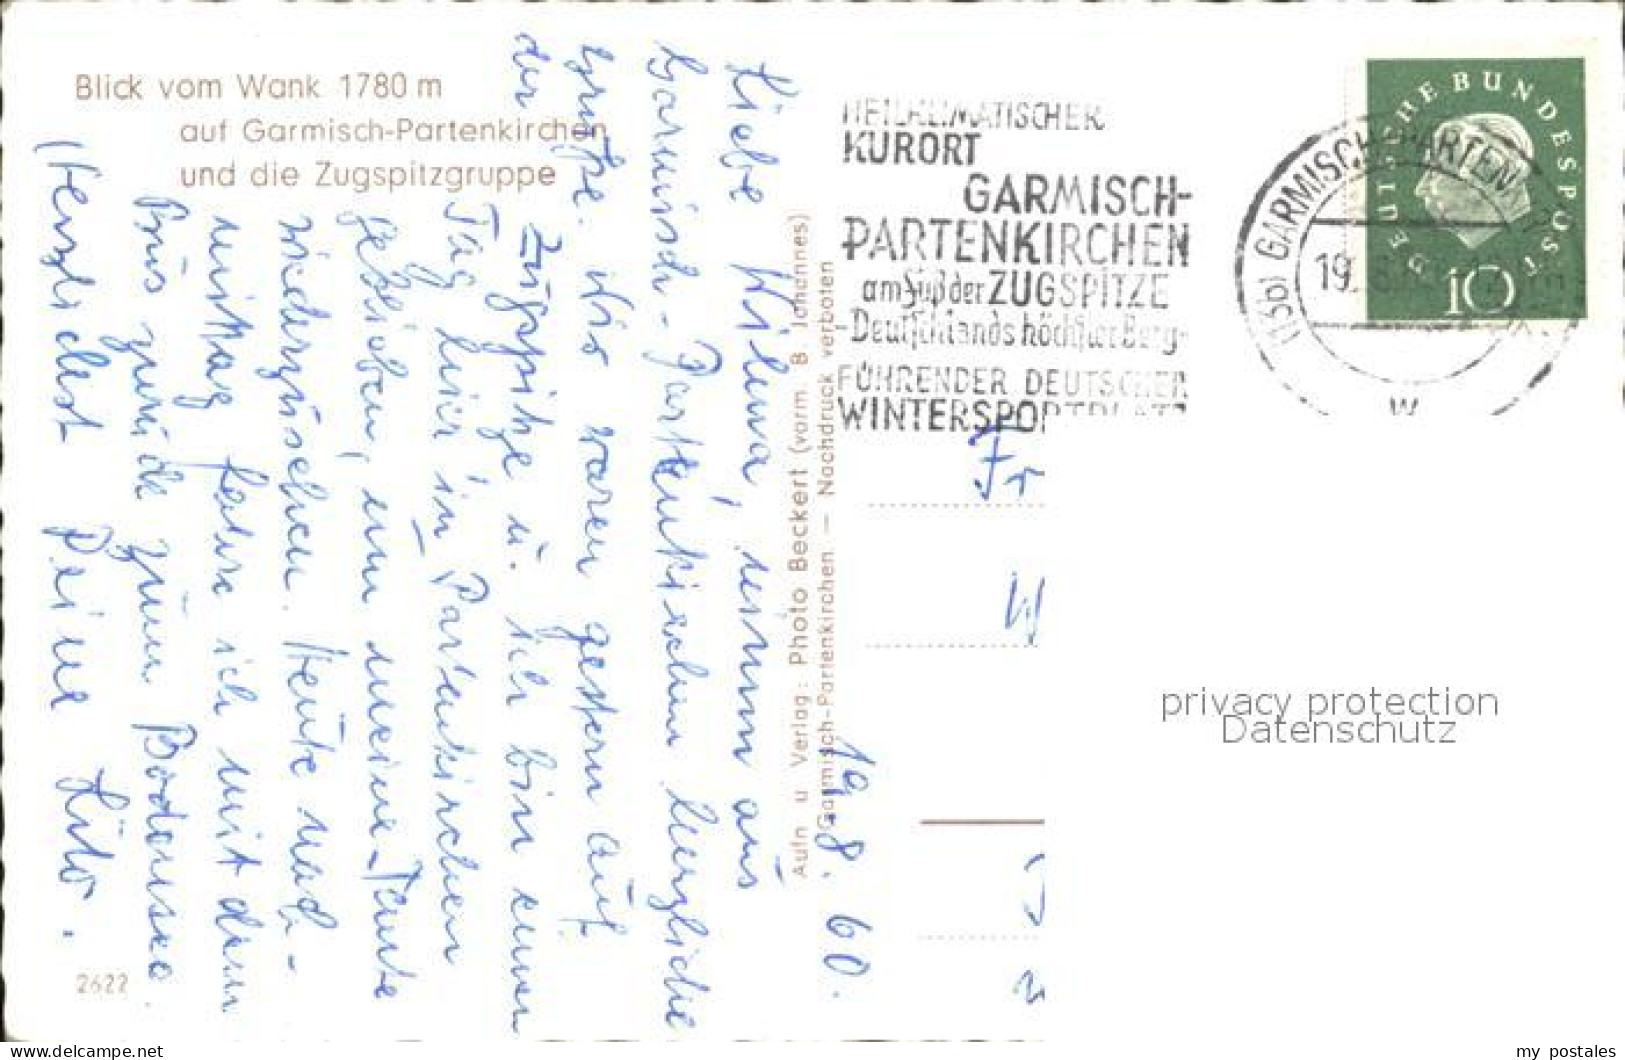 Blick vom Wank 1780 m
auf Garmisch-Partenkirchen
und die Zugspitzgruppe
19.8.60.
Liebe Wilma, nimm aus
Garmisch-Partenkirchen herzliche
Grüße. Wir waren gestern auf
der Zugspitze u. ich bin einen
Tag hier in Partenkirchen
geblieben, um meine Tante
wiederzusehen. Heute nach-
mittag fahre ich mit dem
Bus zurück zum Bodensee.
Herzlichst Deine
2622
Aufn u Verlag: Photo Beckert (vorm. B Johannes)
Garmisch-Partenkirchen — Nachdruck verboten
HEILKLIMATISCHER
KURORT
GARMISCH-
PARTENKIRCHEN
am Fuß der ZUGSPITZE
-Deutschlands höchster Berg-
FÜHRENDER DEUTSCHER
WINTERSPORTPLATZ
(13b) GARMISCH-PARTEN
19.
w
DEUTSCHE BUNDESPOST
10
Fr
W
privacy protection
Datenschutz
my postales
lot-liste.de/com/co.uk/fr